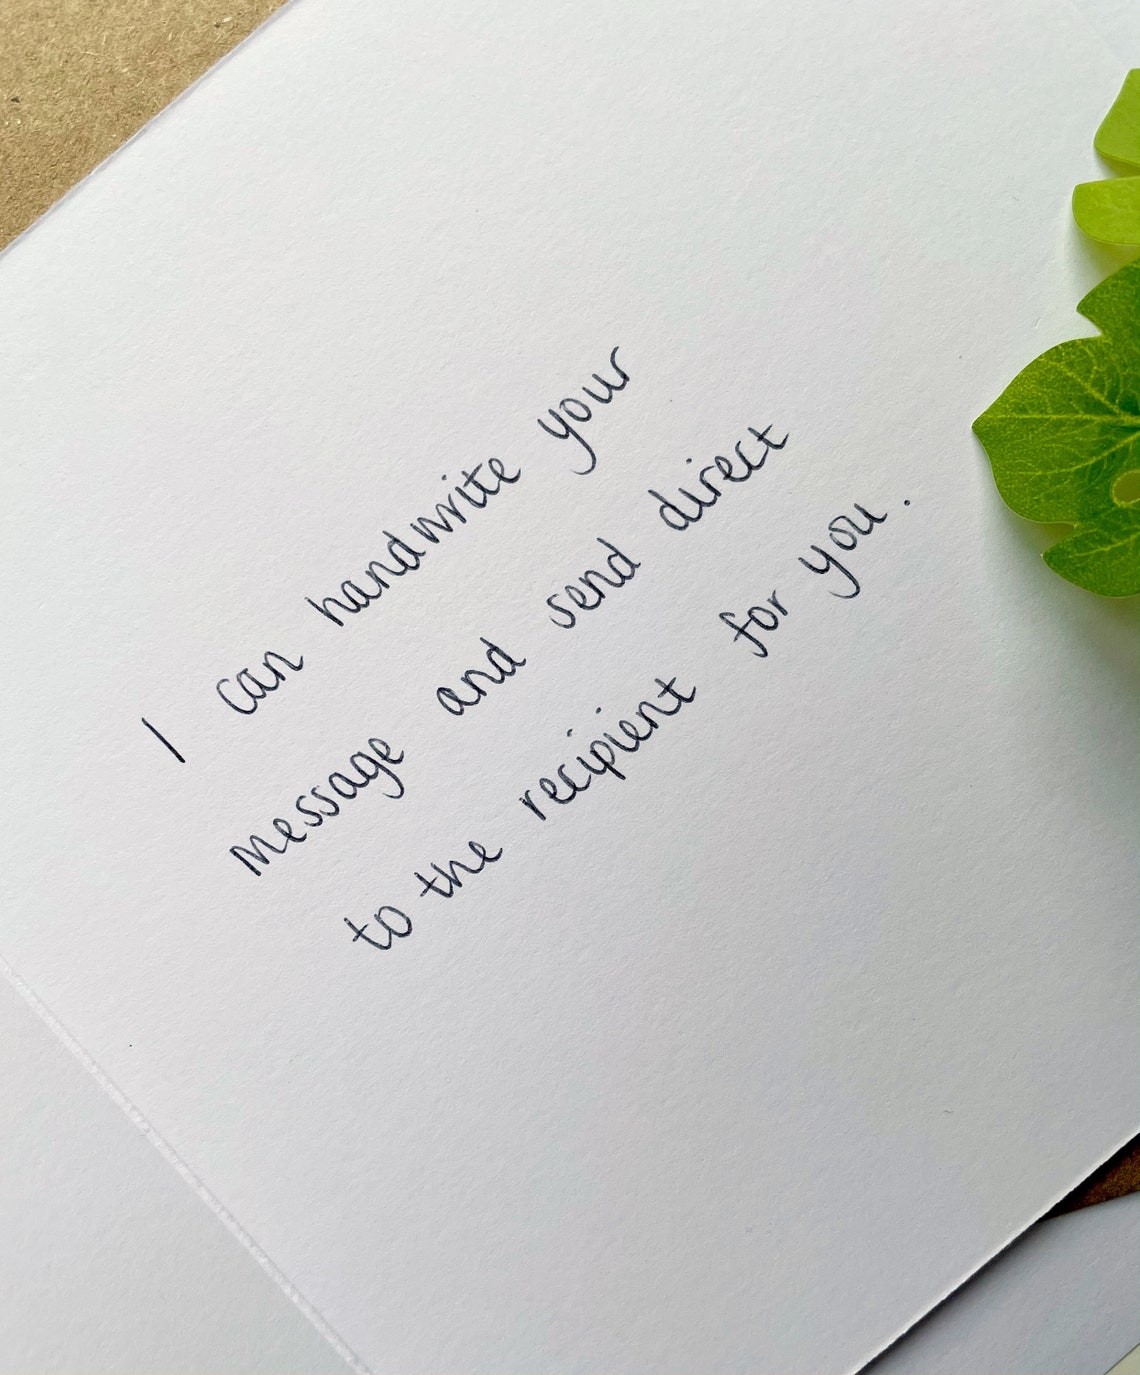 I can handwrite your
message and send direct
to the recipient for you.